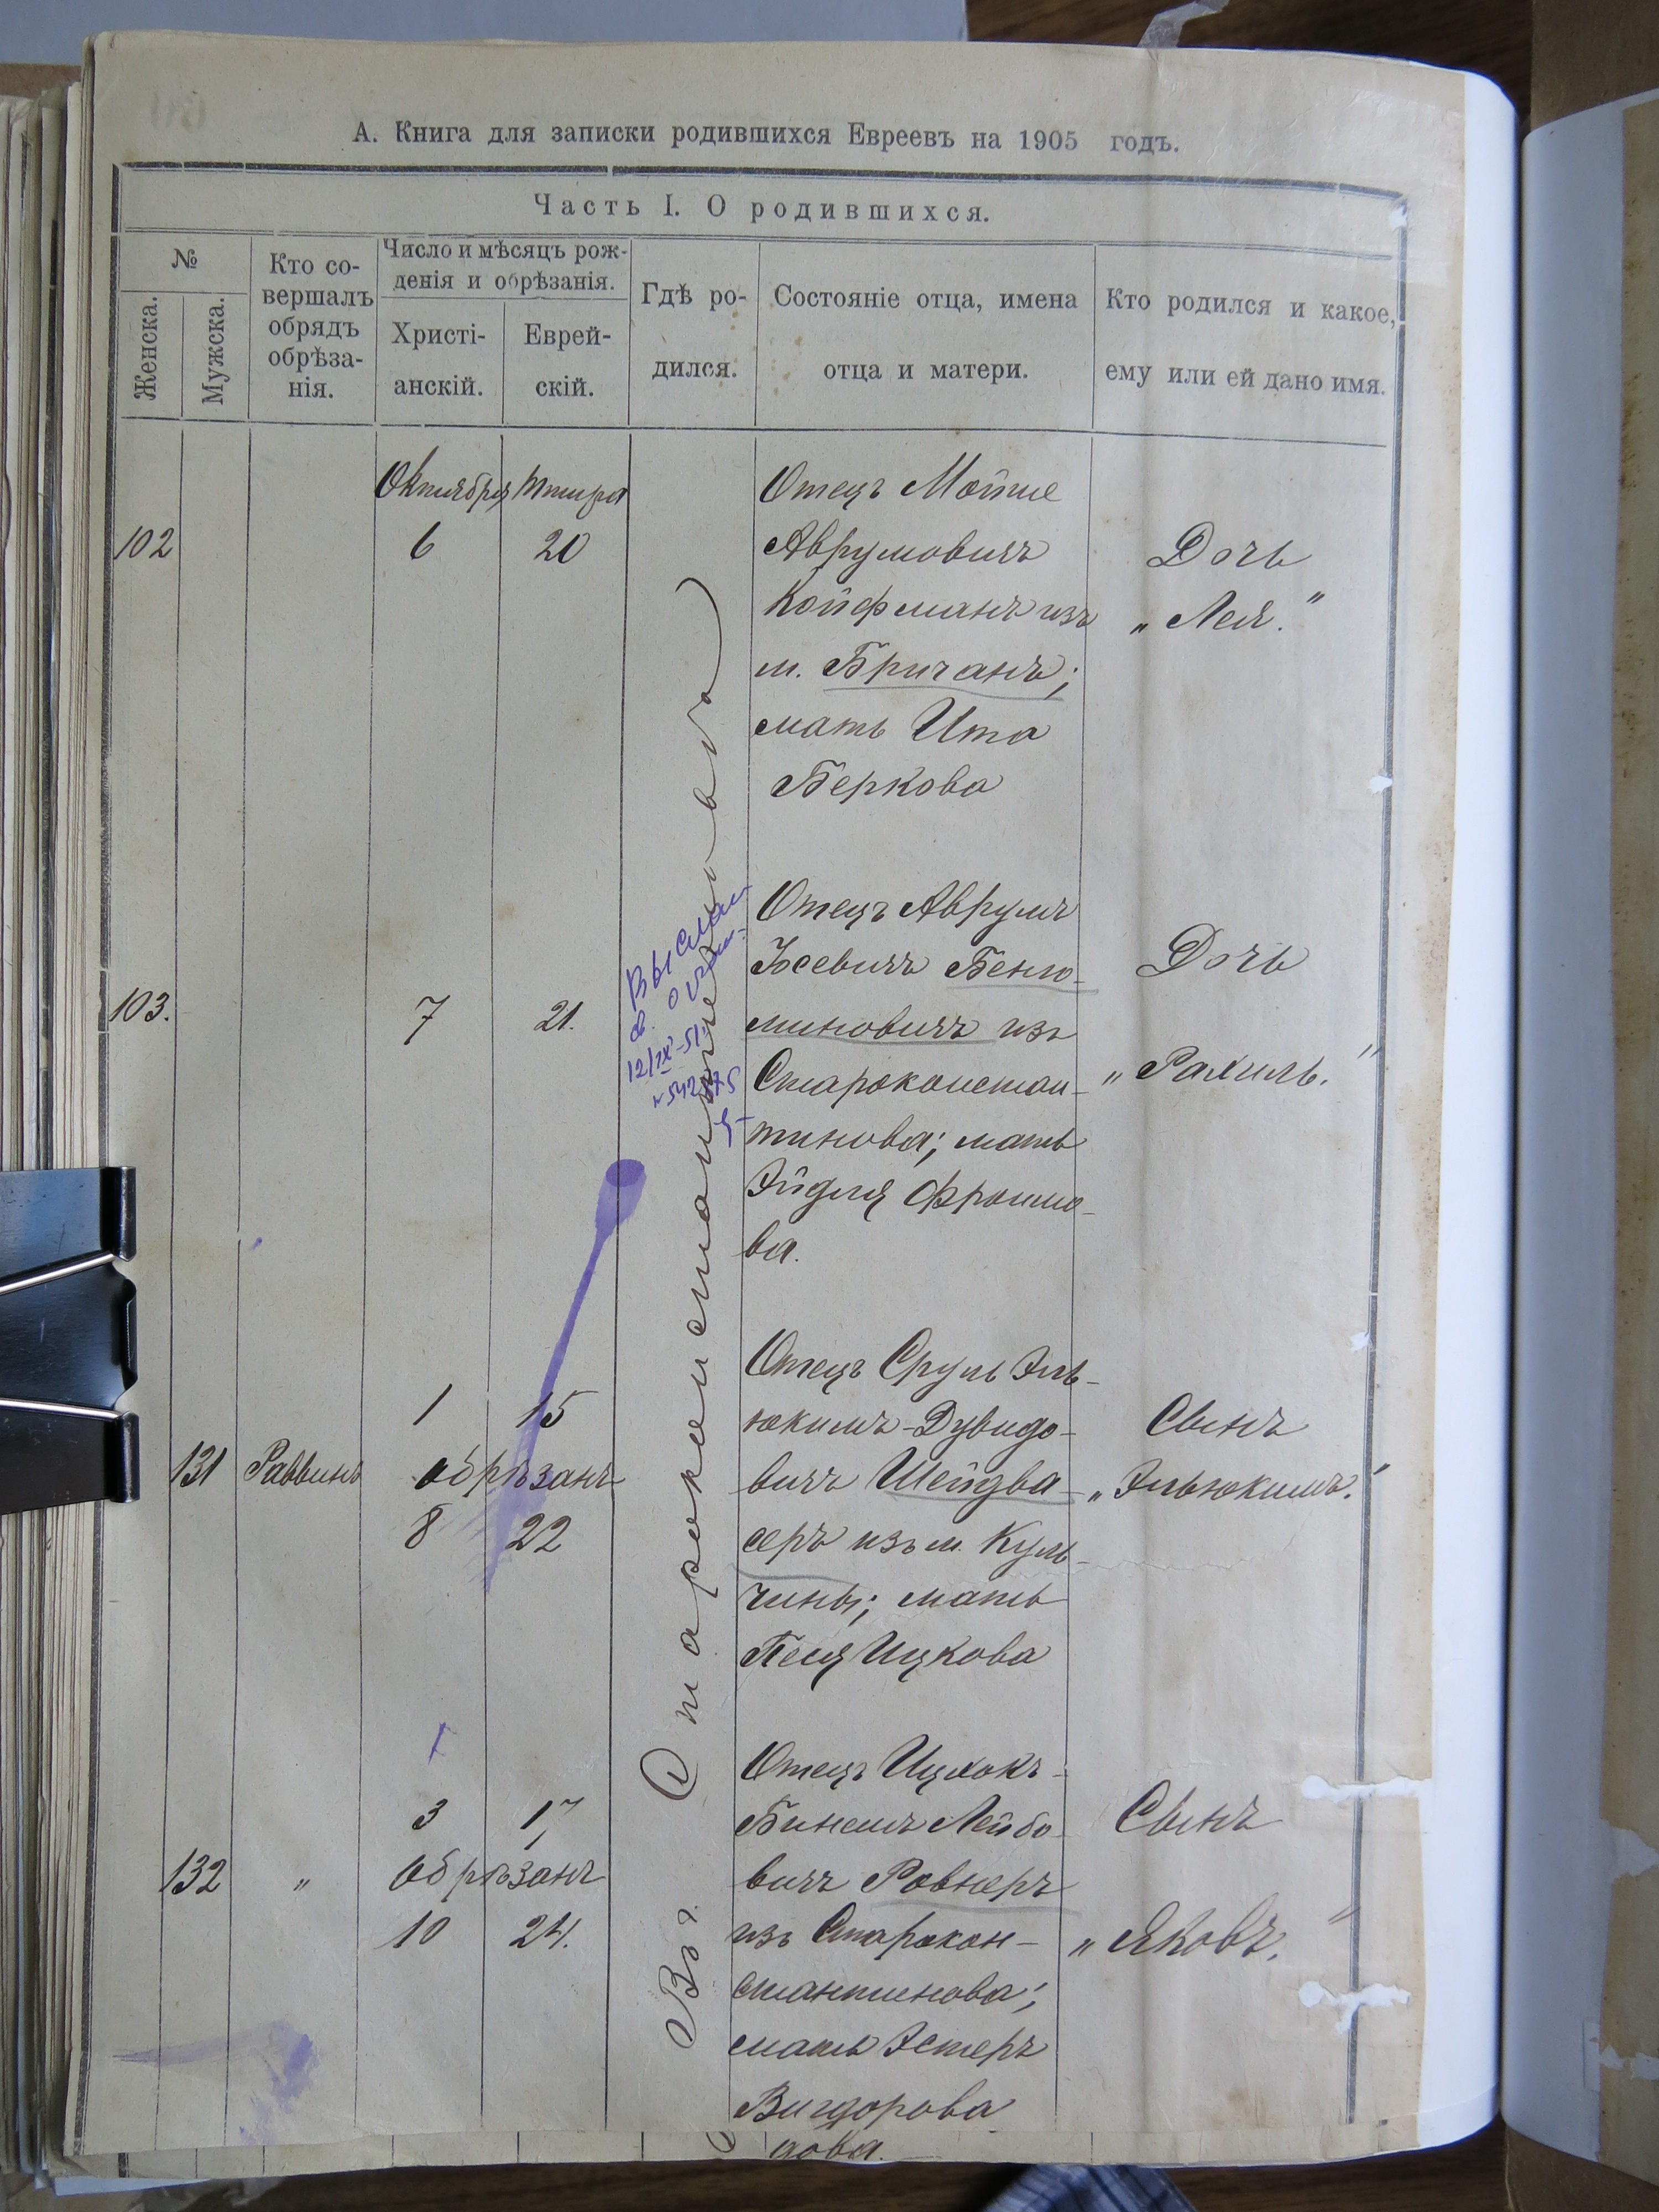 А. Книга для записки родившихся Евреевъ на 1905 годъ.
Часть I. О родившихся.
№
Женска.
Мужска.
Кто со-
вершалъ
обрядъ
обрѣза-
нія.
Число и мѣсяцъ рож-
денія и обрѣзанія.
Христі-
анскій.
Еврей-
скій.
Гдѣ ро-
дился.
Состояніе отца, имена
отца и матери.
Кто родился и какое,
ему или ей дано имя.
Въ г. Староконстантиновѣ
Октября Тишра
102
6 20
Отецъ Мойше
Аврумовичъ
Койфманъ изъ
м. Бричанъ;
мать Ита
Беркова
Дочь
„Лея."
103.
7 21.
Отецъ Аврумъ
Йосевичъ Беню-
миновичъ изъ
Староконстан-
тинова; мать
Эйдля Фроимо-
ва.
Дочь
„Рахиль."
Выслан
св.
12/IX-51г
131 Раввинъ
1 15
обрѣзанъ
8 22
Отецъ Сруль Эль-
юкимъ-Дувидо-
вичъ Шейдва-
серъ изъ м. Куль-
чины; мать
Песя Ицкова
Сынъ
„Эльюкимъ."
132 „
3 17
обрѣзанъ
10 24.
Отецъ Ицхокъ-
Бинемъ Лейбо-
вичъ Ровнеръ
изъ Старокон-
стантинова;
мать Эстеръ
Вигдорова
Сынъ
„Яковъ."
дова.